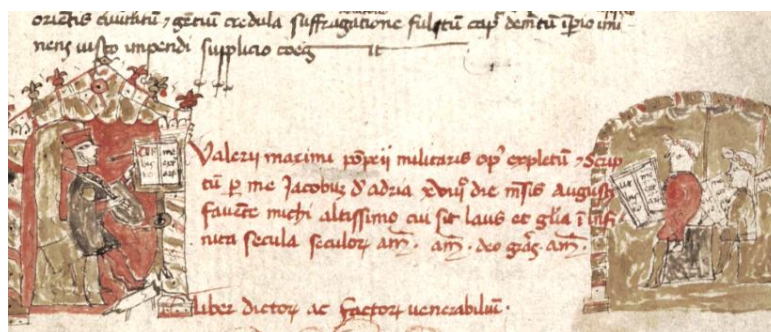 orientis civitatū ⁊ gētiuꝫ credula suffragatione fulctū cap' demētū īpio imi
nens iusto impendi supplicio coeg it
Valerii maximi pōpeii militaris op' expletū ⁊ Scrip
tū ꝑ me Jacobuꝫ d'adria die mēsis augusti
favēte michi altissimo cui sit laus et gl̄ia ī infi
nita secula seculoꝝ am̄. am̄. deo grās. am̄.
liber dictoꝝ ac factoꝝ venerabiliuꝫ.